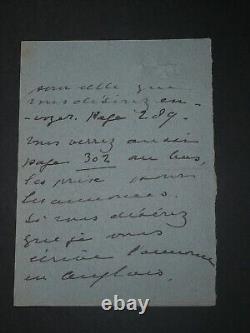 pour celle que
vous désirez en-
voyer. Page 289.
Vous verrez aussi
page 302 au bas,
les prix pour
les annonces.
Si vous désirez
que je vous
écrive l'annonce
en Anglais.